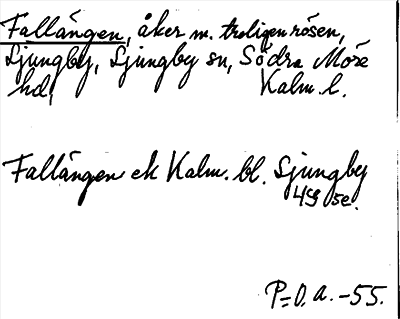 Fallängen, åker m. troligen rösen,
Ljungby, Ljungby sn, Södra Möre
hd, Kalm. l.
Fallängen ek Kalm. bl. Ljungby
4G 5e.
P=O.A. -55.